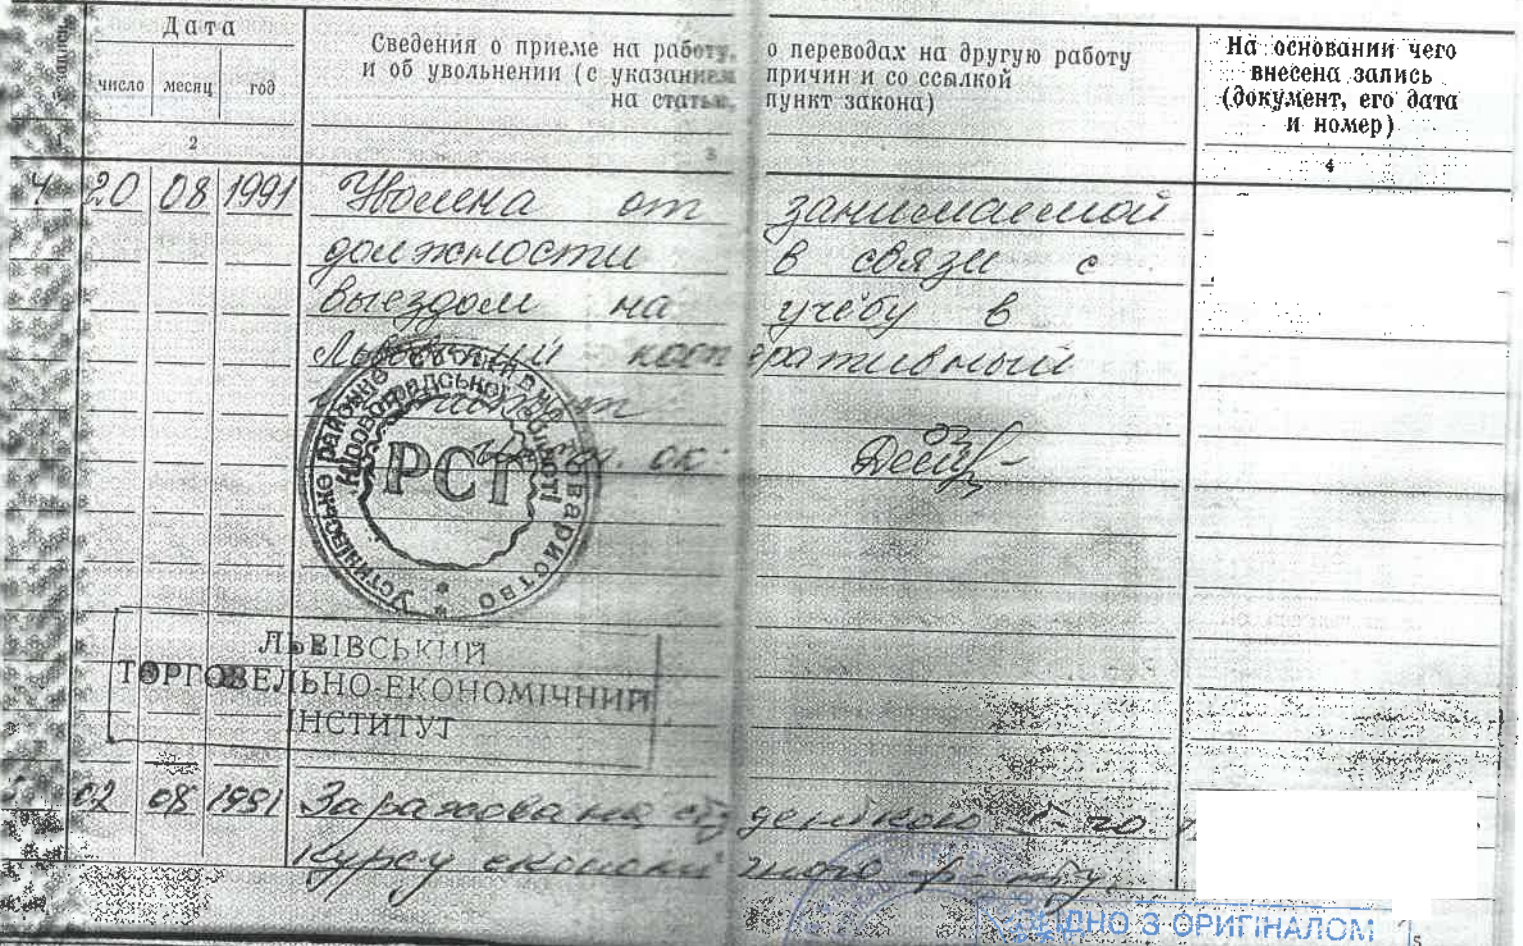 Дата
число месяц год
Сведения о приеме на работу, о переводах на другую работу
и об увольнении (с указанием причин и со ссылкой
на статью, пункт закона)
На основании чего
внесена запись
(документ, его дата
и номер)
2 3 4
4 20 08 1991 Уволена от занимаемой
должности в связи с
выездом на учёбу в
Львовский кооперативный
институт
Устинівське районне споживче товариство
Кіровоградської області
РСТ
ЛЬВІВСЬКИЙ
ТОРГОВЕЛЬНО-ЕКОНОМІЧНИЙ
ІНСТИТУТ
02 08 1991 Зарахована студенткою 1-го
курсу економічного ф-ту.
ЗГІДНО З ОРИГІНАЛОМ